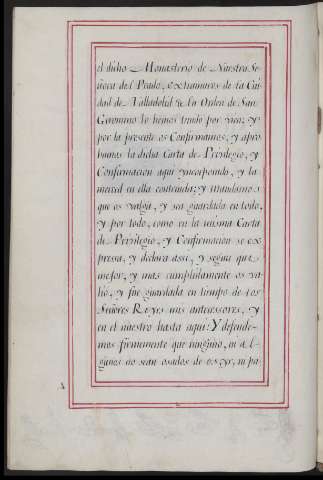 el dicho Monasterio de Nuestra Se-
ñora del Prado, extramuros de la Ciu-
dad de Valladolid de la Orden de San
Geronimo lo hemos tenido por vien; y
por la presente os Confirmamos, y apro-
bamos la dicha Carta de Privilegio, y
Confirmacion aqui yncorporado, y la
merced en ella contenida; y Mandamos
que os valga, y sea guardada en todo,
y por todo, como en la misma Carta
de Pervilegio, y Confirmacion se ex-
presa, y declara assi, y segun que
mejor, y mas cumplidamente os va-
lio, y fue guardada en tiempo de los
Señores Reyes mis antecessores, y
en el nuestro hasta aqui: Y defende-
mos firmemente que ninguno, ni al-
gunos no sean osados de os yr, ni pa-